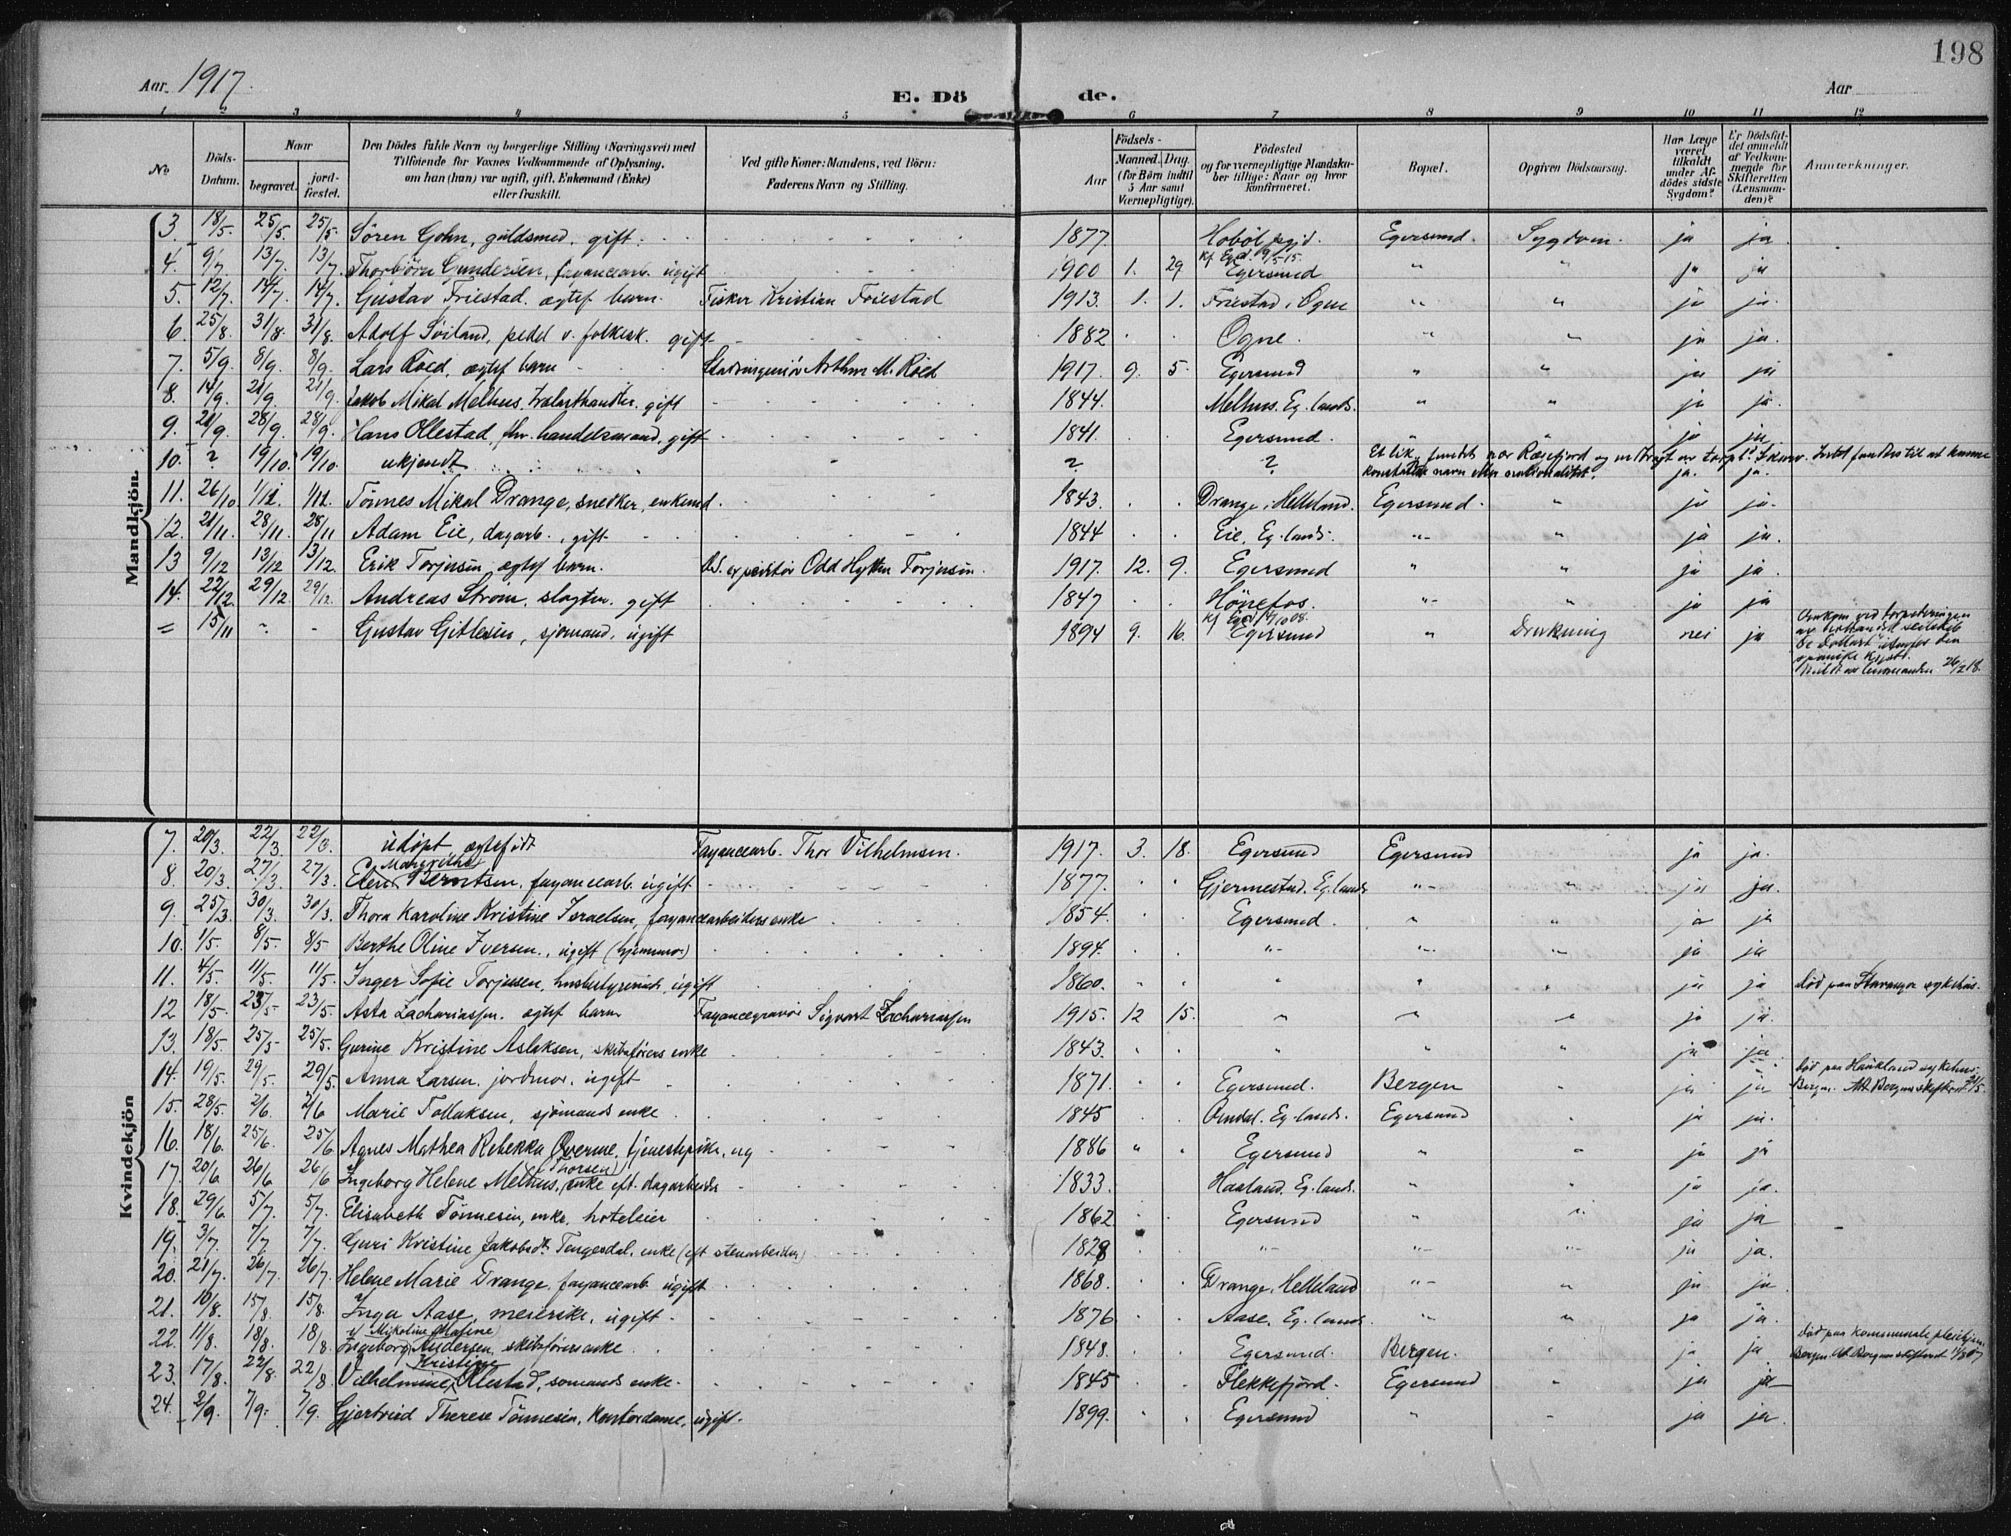 198
Aar 1917.
E. Dö de.
Aar
1 2 3 4 5 6 7 8 9 10 11 12
No
Döds-Datum.
Naar
begravet.
jord-fæstet.
Den Dödes fulde Navn og borgerlige Stilling (Næringsvei) med
Tilföiende for Voxnes Vedkommende af Oplysning,
om han (hun) var ugift, gift, Enkemand (Enke)
eller fraskilt.
Ved gifte Koner: Mandens, ved Börn:
Faderens Navn og Stilling.
Födsels-
Aar
Maaned. Dag.
(for Börn indtil
5 Aar samt
Værnepligtige).
Födested
og for værnepligtige Mandsku-
ber tillige: Naar og hvor
konfirmeret.
Bopæl.
Opgiven Dödsaarsag.
Har Læge
været
tilkaldt
under Af-
dödes sidste
Sygdom?
Er Dödsfal-
det anmeldt
af Vedkom-
mende for
Skifteretten
(Lensman-
den)?
Anmærkninger.
Mandkjön.
3. 18/5. 25/5. 25/5. Sören Gohn, guldsmed, gift. 1877. Hobøl Egersund. Sygdom. ja ja
4. 9/7. 13/7. 13/7. Thorbörn Gundersen, fayancearb. ugift 1900 1. 29 Egersund " " ja ja
5. 12/7. 14/7. 14/7. Gustav Friestad. ægtef. barn. Fisker Kristian Friestad 1913. 1. 1. Friestad i Ogne " " ja ja
6. 25/8. 31/8. 31/8. Adolf Soiland, pedel v. folkesk. gift 1882 Ogne. " " ja ja.
7. 5/9. 8/9. 8/9. Lars Röed, ægtef barn Stadsingeniör Arthur M. Röed 1917. 9. 5. Egersund " " ja ja
8. 14/9. 21/9. 21/9. Jakob Mikal Melhus, gift 1844. Melhus. Eg. lands. " " ja ja.
9. 21/9. 28/9. 28/9. Hans Ollestad, fhv. handelsmand, gift 1841. Egersund. " " ja ja
10. ? 19/10. 19/10. ukjendt ? ? Et lik, fundet nær Rægefjord og
konstatere navn eller nationalitet. ja. ja.
11. 26/10 1/12. 1/12. Tönnes Mikal Drange, snekker, enkemd. 1843. Drange i Helleland. Egersund. " ja ja.
12. 21/11. 28/11. 28/11 Adam Eie, dagarb., gift 1844 Eie, Eg. lands. " " ja ja.
13 9/12 13/12 13/12. Erik Torjusen ægtef barn. Odd Torjusen. 1917. 12. 9. Egersund " " ja ja.
14. 22/12. 29/12 29/12. Andreas Ström, slagter. gift 1847 Hönefos. " " ja ja
= 15/11 - - Gustav Gitlesen, sjömand, ugift 1894 9. 16. Egersund " Drukning nei ja Omkom ved torpederingen
av
spanske kyst.
26/2 18.
Kvindekjön
7. 20/3. 22/3. 22/3. udöpt ægtefödt Fayancearb. Thor Vilhelmsen. 1917. 3. 18. Egersund Egersund ja ja.
Margrethe
8. 20/3. 27/3. 27/3. Elen Berntsen, fayancearb. ugift 1877. Gjermestad. Eg. lands " " ja ja.
9. 25/3. 30/3. 30/3. Thora Karoline Kristine Israelsen, fayancearbeiders enke 1854. Egersund. " " ja ja
10. 1/5. 8/5. 8/5 Berthe Oline Iversen, ugift (hjemmev.) 1894. " " " ja ja
11. 4/5. 11/5. 11/5. Inger Sofie Torjusen, husbestyrerinde, ugift 1860. " " " ja ja död paa Stavanger sykehus.
12 18/5. 23/5. 23/5. Asta Zachariassen. ægtef barn Fayancegravör Sigvart Zachariassen 1915. 12 15. " " " ja ja.
13. 18/5. 25/5. 25/5. Gurine Kristine Aslaksen, skibsförers enke 1843. " " " ja ja
14. 19/5. 29/5. 29/5. Anna Larsen. jordmor. ugift 1871. Egersund. Bergen " ja ja död paa Haukeland sykehus.
Bergen.
15. 28/5. 2/6. 2/6 Marie Tollaksen, sjömands enke 1845 Omdal. Eg. lands. Egersund " ja ja.
16. 18/6. 25/6. 25/6 Agnes Mathea Rebekka Qverme, tjenestepike, ug 1886 Egersund " " ja ja
(Thorsen)
17. 20/6 26/6 26/6 Ingeborg Helene Melhus, enke eft. dagarbeider 1833. Haaland. Eg. lands. " " ja ja.
18. 29/6. 5/7. 5/7. Elisabeth Tönnesen, enke, hoteleier 1862 Egersund " " ja ja
19. 3/7. 7/7 7/7. Guri Kristine Jakobsdt. Tengesdal, enke (eft stenarbeider) 1828 " " " ja ja.
20. 21/7. 26/7. 26/7. Helene Marie Drange, fayancearb. ugift 1868. Drange i Helleland " " ja ja
21. 10/8. 15/8. 15/8. Inga Aase, meierske, ugift 1876 Aase. Eg. lands " " ja ja.
Mikoline Maline
22. 11/8. 18/8. 18/8. Ingeborg Andersen, skibsförers enke 1848. Egersund. Bergen. ja ja död paa kommunale pleiehjem
Bergen.
Kristine
23. 17/8. 22/8. 22/8 Vilhelmine Ollestad, sömands enke. 1845 Flekkefjord. Egersund " ja ja
24. 2/9. 7/9. 7/9. Gjertrud Therese Tönnesen, kontordame, ugift. 1899. Egersund " " ja ja.